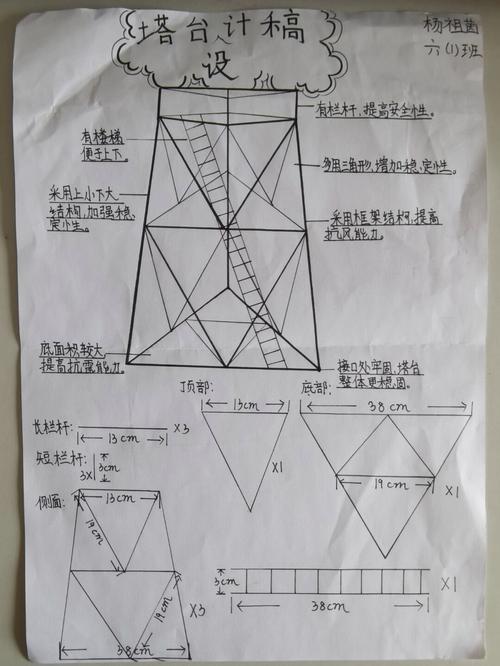 塔台设计稿
杨祖茵
六(1)班
有栏杆,提高安全性。
有楼梯
便于上下。
多用三角形,增加稳定性。
采用上小下大
结构,加强稳
定性。
采用框架结构,提高
抗风能力。
底面积较大
提高抗震能力。
接口处牢固,塔台
整体更稳固。
顶部:
13cm
X1
底部:
38cm
19cm
X1
长栏杆:
13cm
X3
短栏杆:
3X
3cm
侧面:
13cm
19cm
19cm
38cm
X3
3cm
38cm
X1